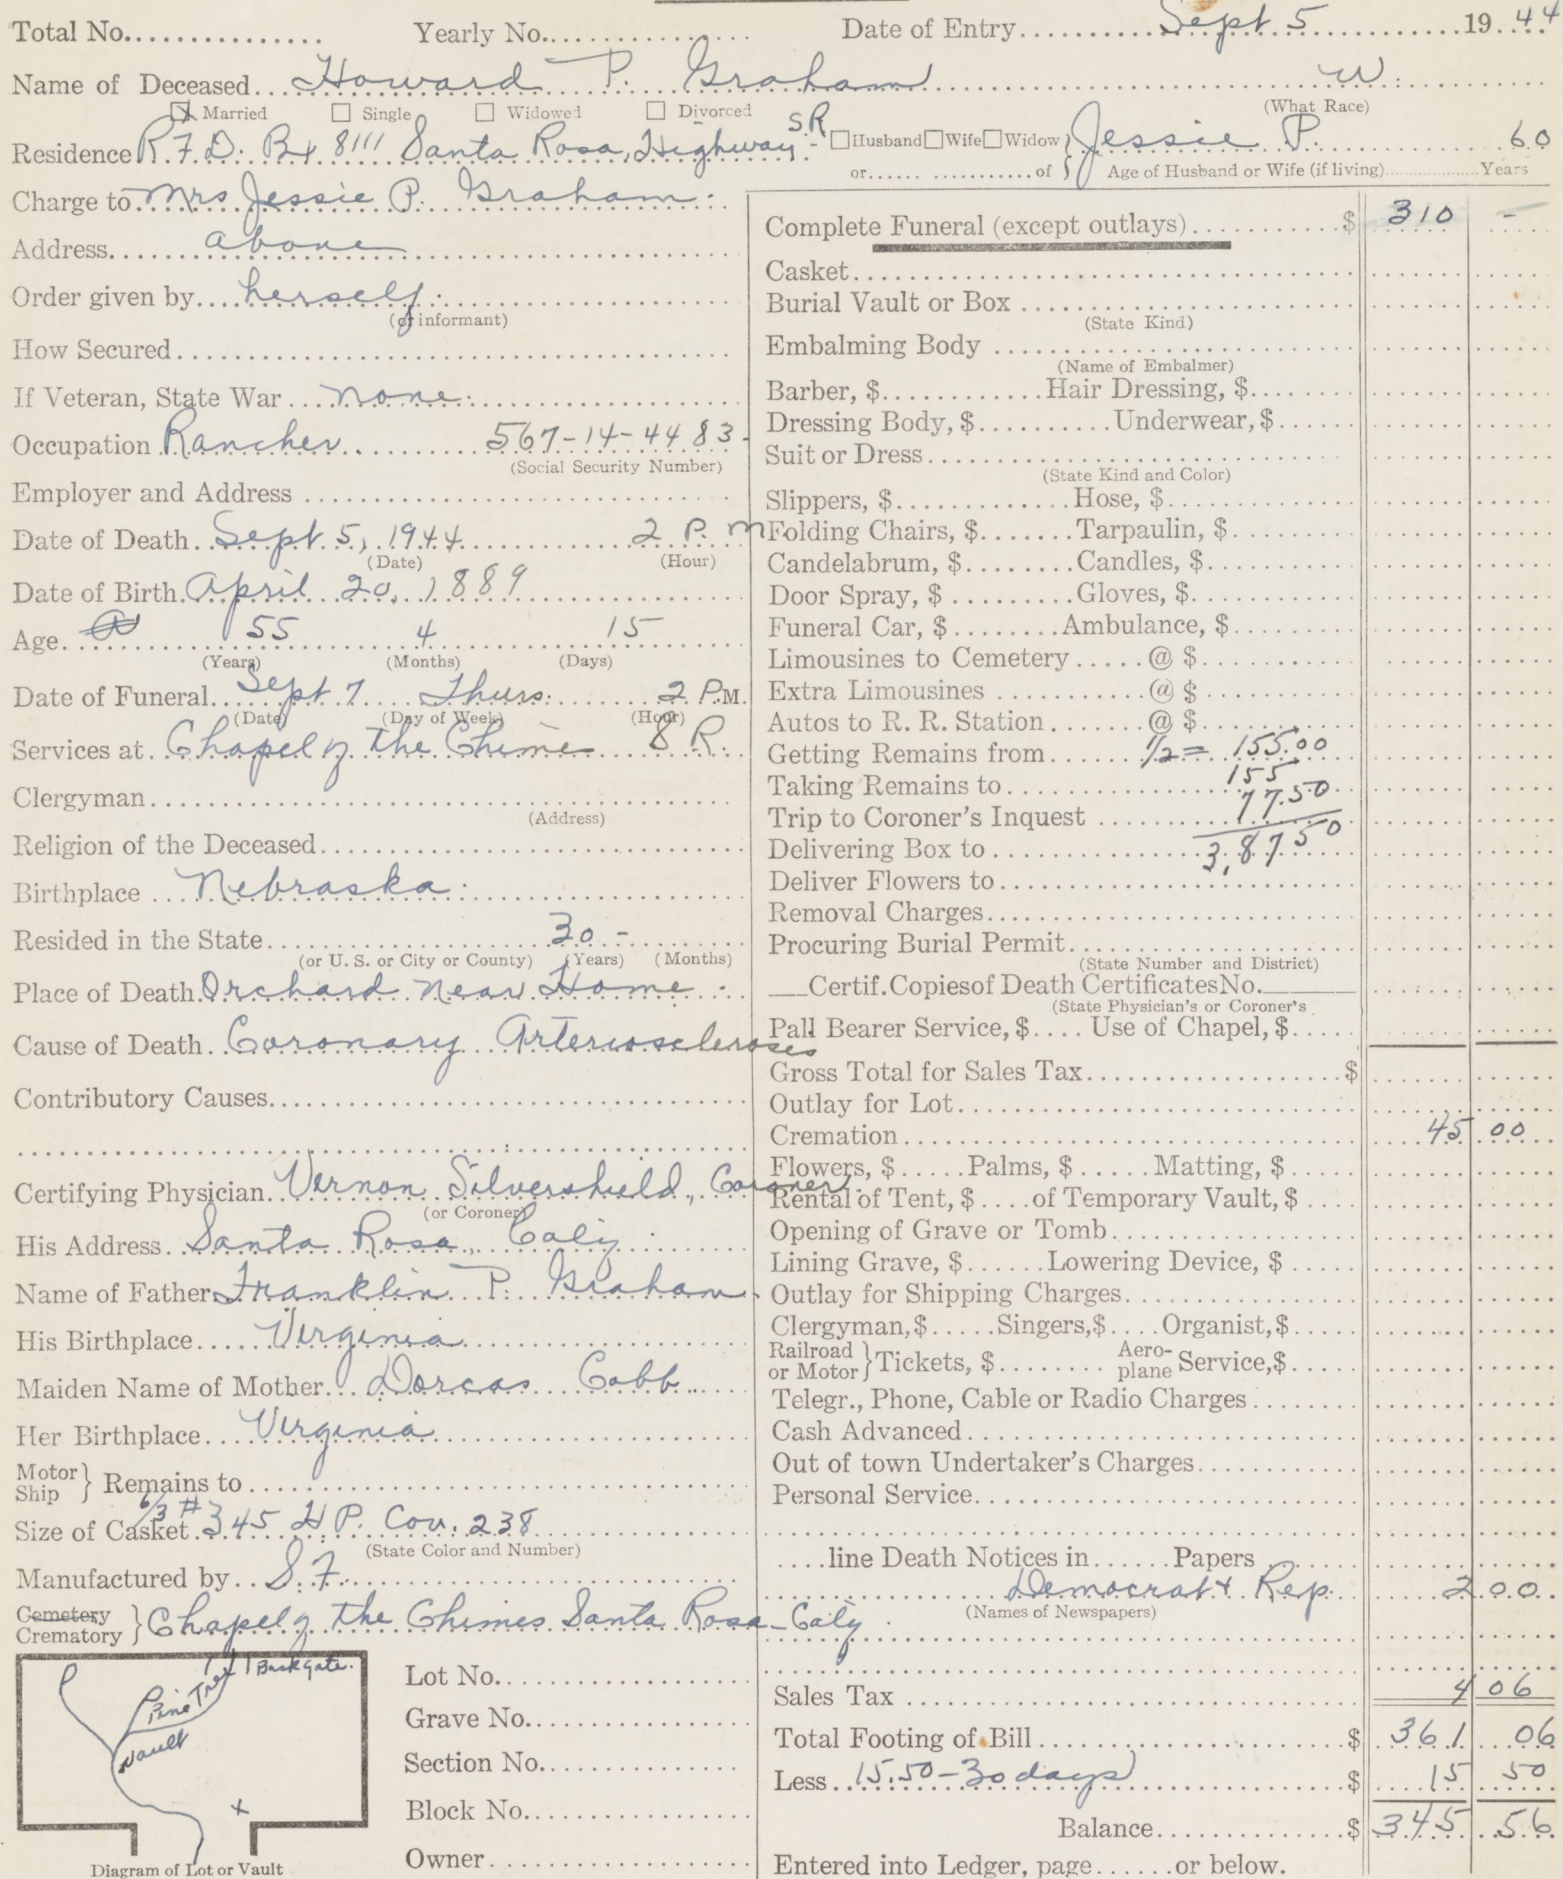 Total No............... Yearly No.................. Date of Entry Sept 5 1944
Name of Deceased Howard P. Graham W.
☒ Married ☐ Single ☐ Widowed ☐ Divorced (What Race)
Residence R.F.D. Bx 8111 Santa Rosa, Highway - S.R. ☐Husband☐Wife☐Widow} Jessie P. 60
or...... ............of } Age of Husband or Wife (if living) Years
Charge to Mrs Jessie P. Graham.
Address above
Order given by herself.
(of informant)
How Secured
If Veteran, State War none.
Occupation Rancher 567-14-4483
(Social Security Number)
Employer and Address
Date of Death Sept 5, 1944 2 P.M
(Date) (Hour)
Date of Birth April 20, 1889
Age 55 4 15
(Years) (Months) (Days)
Date of Funeral Sept 7 Thurs. 2 P.M.
(Date) (Day of Week) (Hour)
Services at Chapel of the Chimes S R.
Clergyman
(Address)
Religion of the Deceased
Birthplace Nebraska.
Resided in the State 30 -
(or U. S. or City or County) (Years) (Months)
Place of Death Orchard near Home
Cause of Death Coronary Arteriosclerosis
Contributory Causes
Certifying Physician Vernon Silvershield, Coroner
(or Coroner)
His Address Santa Rosa, Calif
Name of Father Franklin P. Graham
His Birthplace Virginia
Maiden Name of Mother Dorcas Cobb
Her Birthplace Virginia
Motor
Ship } Remains to
6/3 #
Size of Casket 345 H P. Cov. 238
(State Color and Number)
Manufactured by S.F.
Cemetery
Crematory } Chapel of the Chimes Santa Rosa - Calif
Back gate.
Pine Tree
Vault
x
Diagram of Lot or Vault
Lot No.
Grave No.
Section No.
Block No.
Owner
Complete Funeral (except outlays) $ 310 -
Casket
Burial Vault or Box
(State Kind)
Embalming Body
(Name of Embalmer)
Barber, $ Hair Dressing, $
Dressing Body, $ Underwear, $
Suit or Dress
(State Kind and Color)
Slippers, $ Hose, $
Folding Chairs, $ Tarpaulin, $
Candelabrum, $ Candles, $
Door Spray, $ Gloves, $
Funeral Car, $ Ambulance, $
Limousines to Cemetery @ $
Extra Limousines @ $
Autos to R. R. Station @ $
Getting Remains from 1/2 = 155.00
Taking Remains to 155
Trip to Coroner's Inquest 77.50
Delivering Box to 3,87.50
Deliver Flowers to
Removal Charges
Procuring Burial Permit
(State Number and District)
Certif. Copies of Death Certificates No.
(State Physician's or Coroner's
Pall Bearer Service, $ Use of Chapel, $
Gross Total for Sales Tax $
Outlay for Lot
Cremation 45 00
Flowers, $ Palms, $ Matting, $
Rental of Tent, $ of Temporary Vault, $
Opening of Grave or Tomb
Lining Grave, $ Lowering Device, $
Outlay for Shipping Charges
Clergyman, $ Singers, $ Organist, $
Railroad
or Motor } Tickets, $ Aero-
plane Service, $
Telegr., Phone, Cable or Radio Charges
Cash Advanced
Out of town Undertaker's Charges
Personal Service
line Death Notices in Papers
Democrat & Rep. 2 00
(Names of Newspapers)
Sales Tax 4 06
Total Footing of Bill $ 361 06
Less 15.50 - 30 days) $ 15 50
Balance $ 345 56
Entered into Ledger, page......or below.